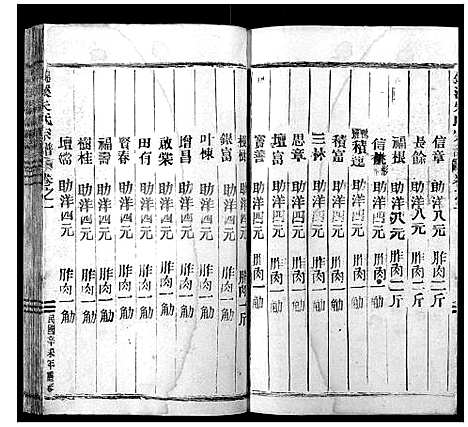 信章 助洋八元 胙肉二斤
長餘 助洋八元 胙肉二斤
福根 助洋八元 胙肉二斤
信 助洋四元 胙肉一斤
積 助洋四元 胙肉一觔
積富 助洋四元 胙肉一觔
三林 助洋四元 胙肉一觔
思章 助洋四元 胙肉一觔
壇富 助洋四元 胙肉一觔
寶善 助洋四元 胙肉一觔
銀富 助洋四元 胙肉一斤
叶棟 助洋四元 胙肉一觔
增昌 助洋四元 胙肉一觔
啟棠 助洋四元 胙肉一觔
田有 助洋四元 胙肉一觔
賢春 助洋四元 胙肉一觔
福壽 助洋四元 胙肉一觔
樹桂 助洋四元 胙肉一觔
壇 助洋四元 胙肉一觔
溪朱氏宗譜 卷之一
民國辛未年重修